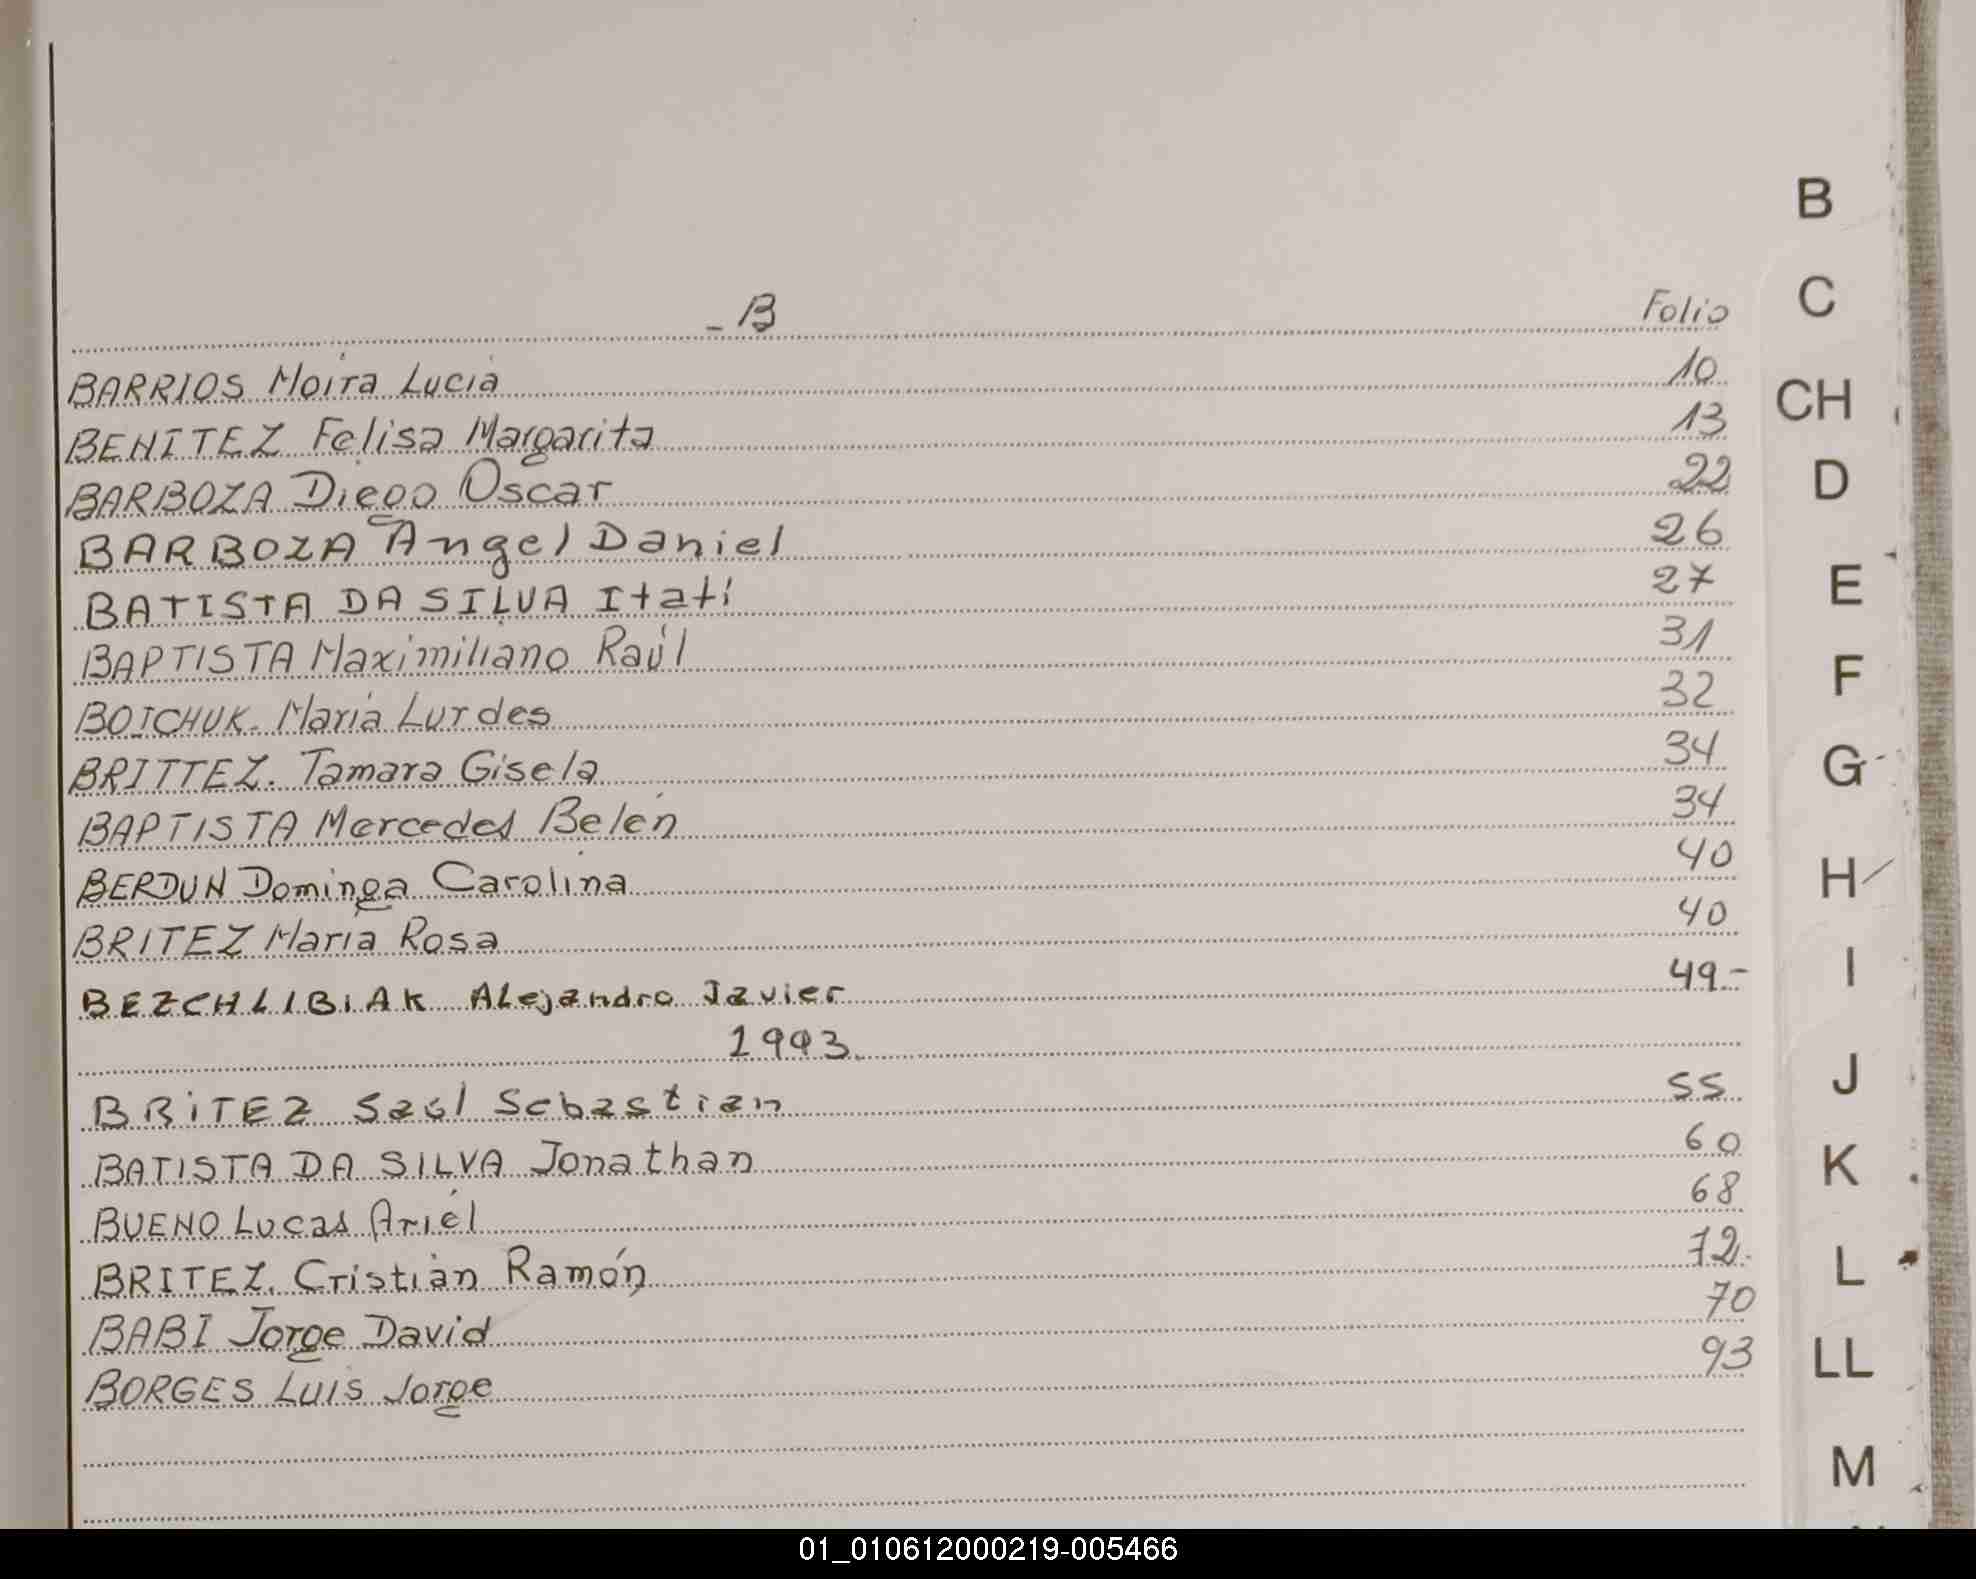 - B Folio
BARRIOS Moira Lucia 10
BENITEZ Felisa Margarita 13
BARBOZA Diego Oscar 22
BARBOZA Angel Daniel 26
BATISTA DA SILVA Itatí 27
BAPTISTA Maximiliano Raúl 31
BOICHUK. Maria Lurdes 32
BRITTEZ. Tamara Gisela 34
BAPTISTA Mercedes Belén 34
BERDUN Dominga Carolina 40
BRITEZ Maria Rosa 40
BEZCHLIBIAK Alejandro Javier 49-
1993.
BRITEZ Saúl Sebastian 55
BATISTA DA SILVA Jonathan 60
BUENO Lucas Ariél 68
BRITEZ. Cristian Ramón 72.
BABI Jorge David 70
BORGES Luis Jorge 93
B
C
CH
D
E
F
G
H
I
J
K
L
LL
M
01_010612000219-005466